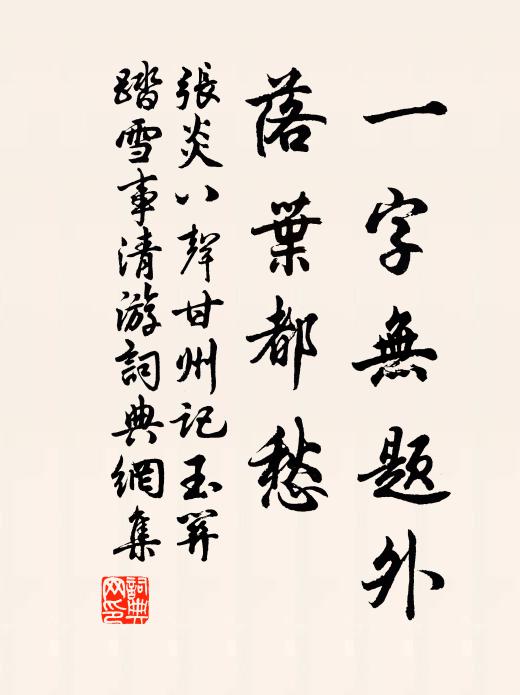 一字無題外
落葉都愁
張炎八聲甘州記玉關
踏雪事清游詞典網集
詞典网印